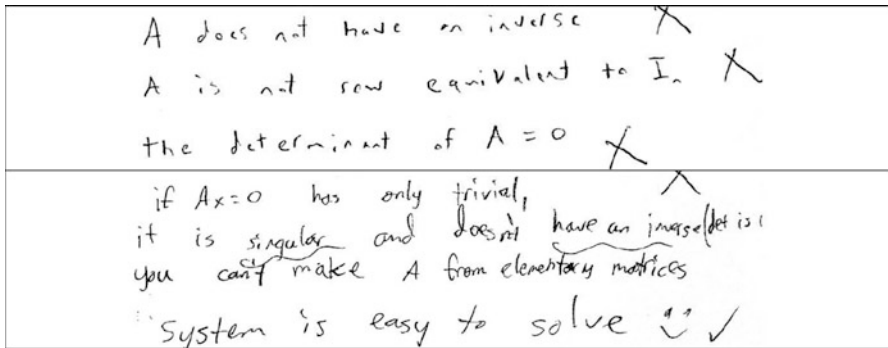 A does not have an inverse ✗
A is not row equivalent to In ✗
the determinant of A = 0 ✗
if Ax=0 has only trivial,
it is singular and doesn't have an inverse (det is
you can't make A from elementary matrices
System is easy to solve ✓